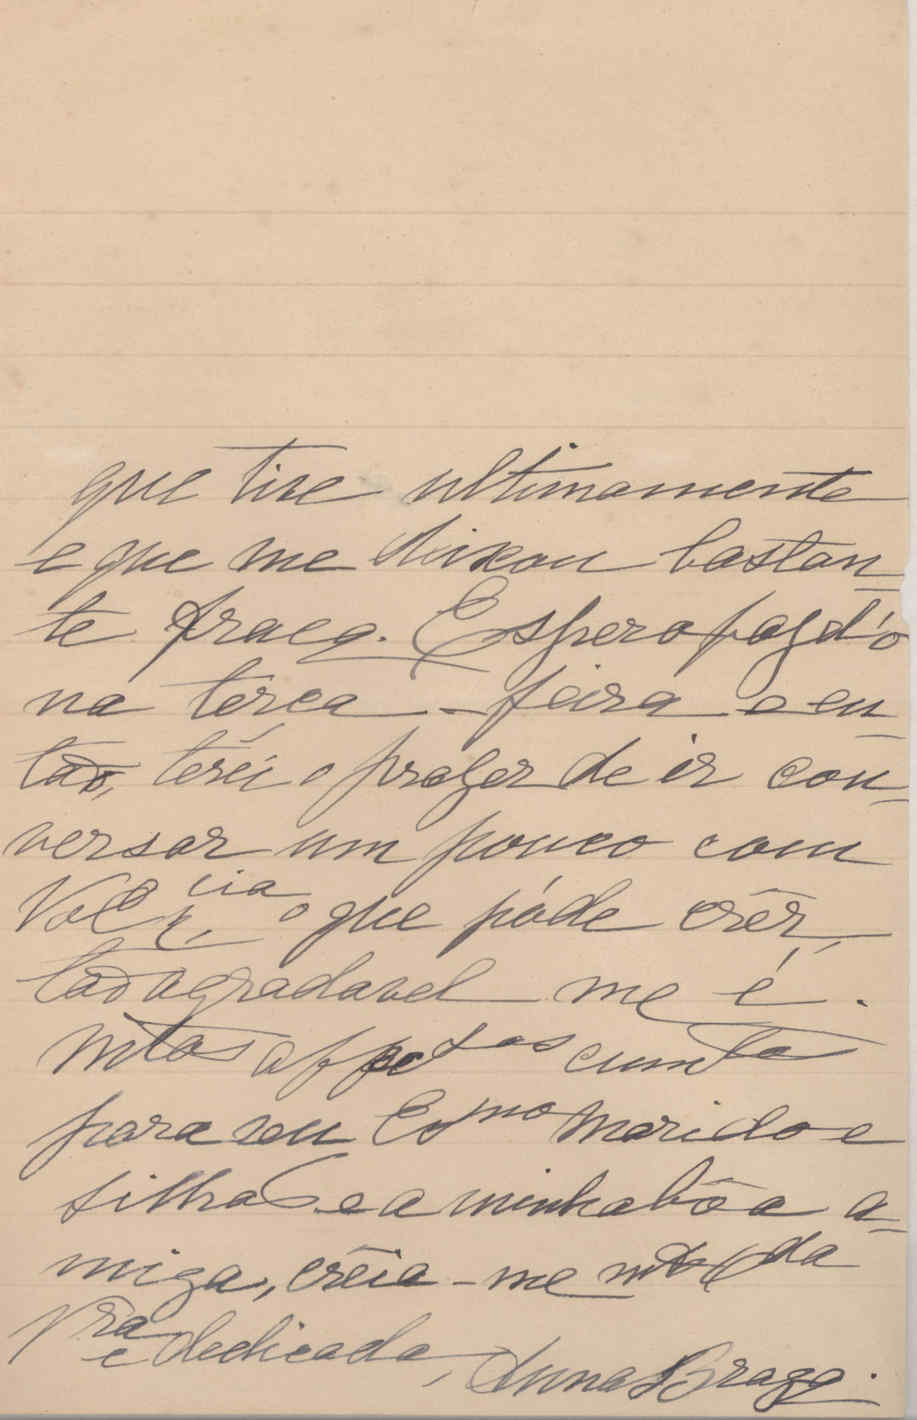 que tive ultimamente
e que me deixou bastan=
te fraca. Espero fazel'o
na terça-feira e en=
tão, teréi o prazer de ir con=
versar um pouco com
V. Excia, o que póde crêr,
tão agradavel me é.
Mtos affectos
para seu Exmo marido e
filhas e a minha bôa a=
miga, crêia-me mto
Vra
e dedicada, Anna Braga.